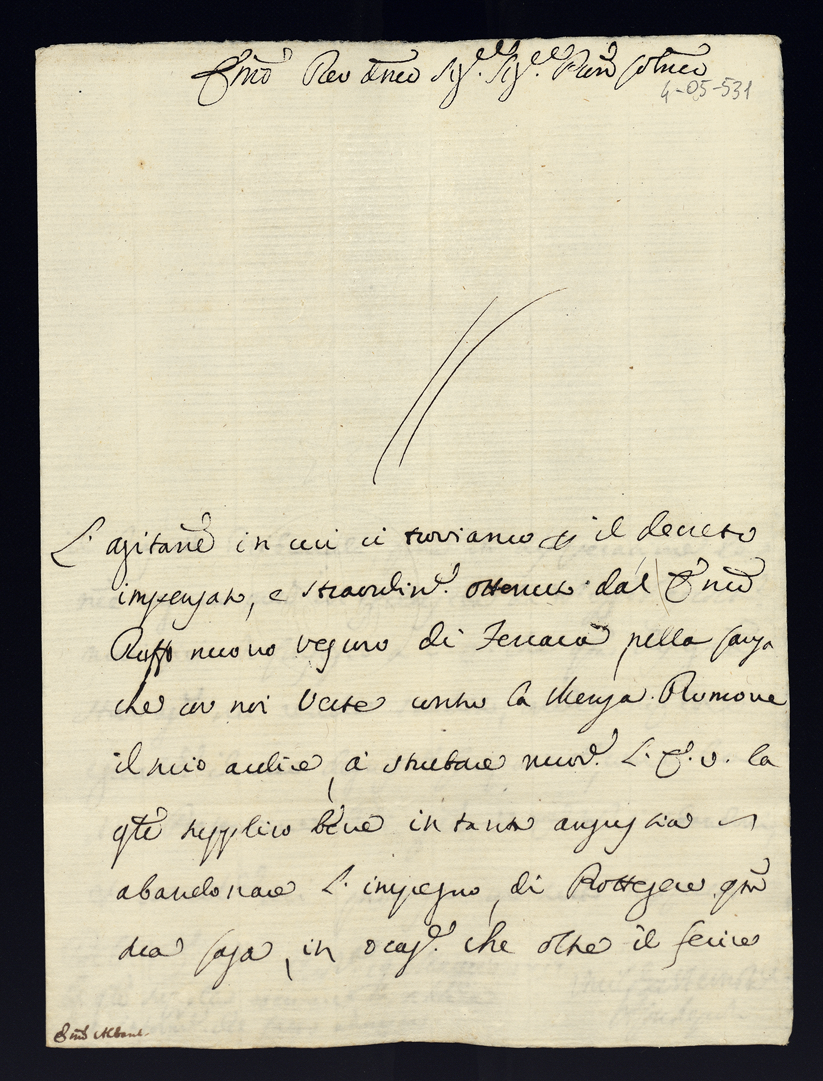 Emō Rev dmeo Sigʳ. Sigʳ. Prōn
4-05-531
L'agitanē in cui ci troviamo il decreto
impensato, e straordinʳ. ottenuto dal Emō
Ruffo nuovo vescovo di Ferrara pella causa
che con noi verte contro la Mensa. Rumove
il mio ardire, à sturbare nuovʳ. L. E. v. la
qtē supplico in tanta angustia
abandonare L. impegno, di Protegere qsta
sua casa, in ocasʳ. che oltre il ferire
Emō Albani